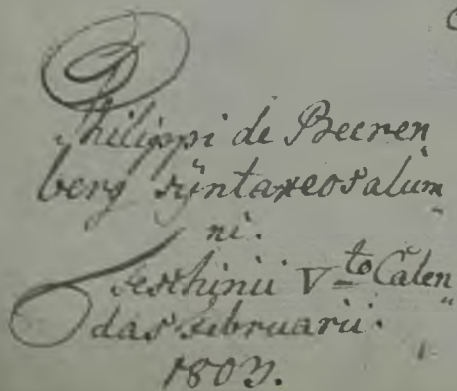 Philippi de Beeren
berg sÿntaxeos alum„
ni.
Teschinii V to Calen„
das februarii.
1803.